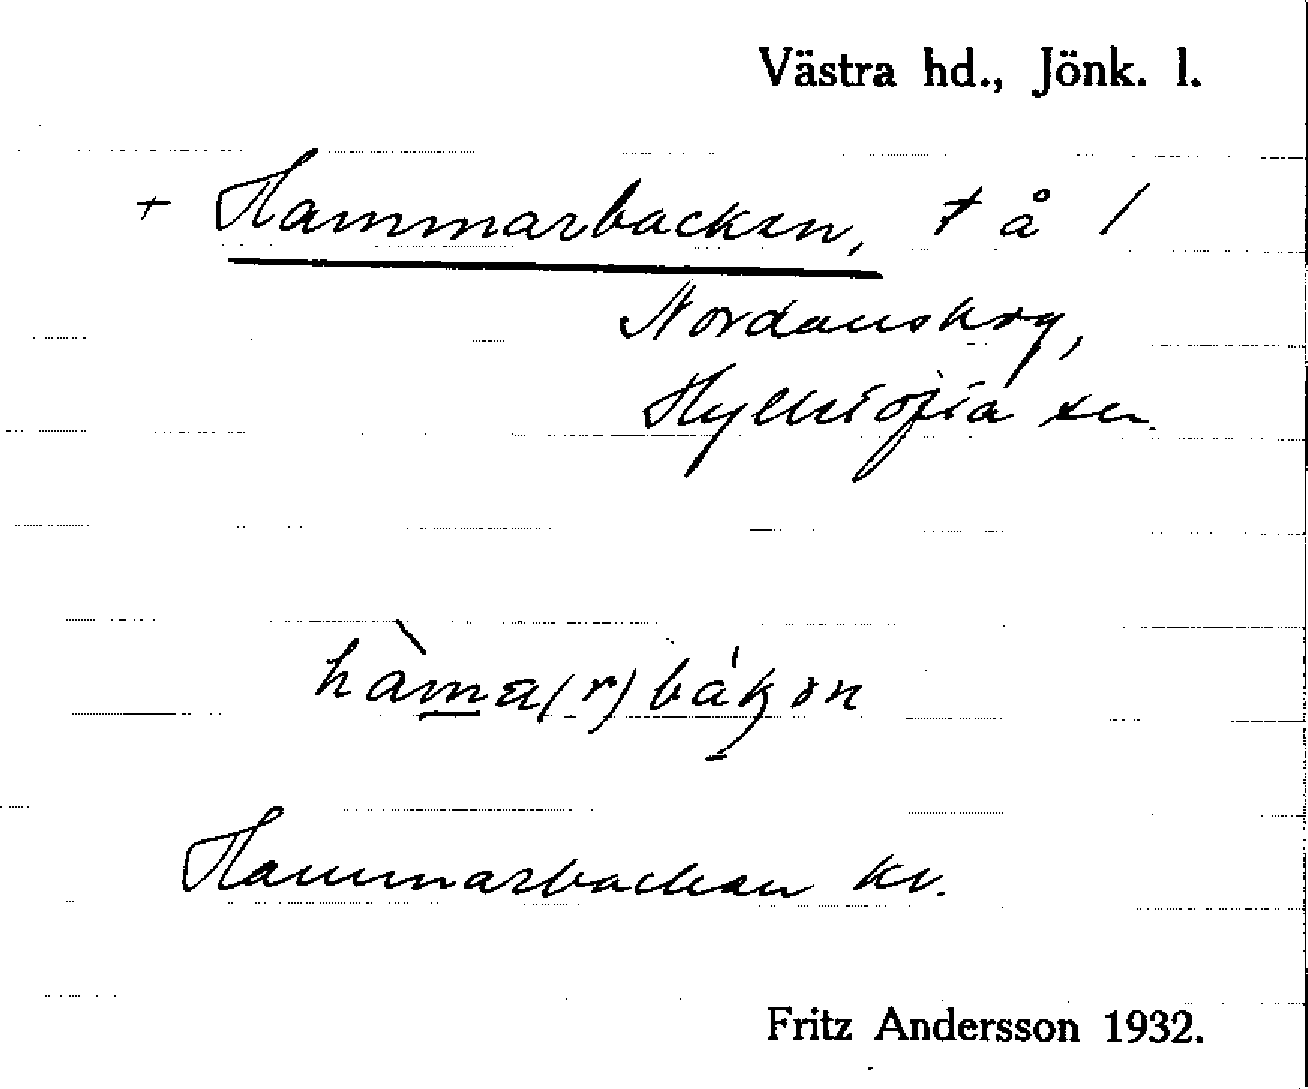 Västra hd., Jönk. l.
+ Hammarbacken, † å 1
Nordanskog,
Hylletofta sn.
hàma(r)bákən
Hammarbacken kv.
Fritz Andersson 1932.